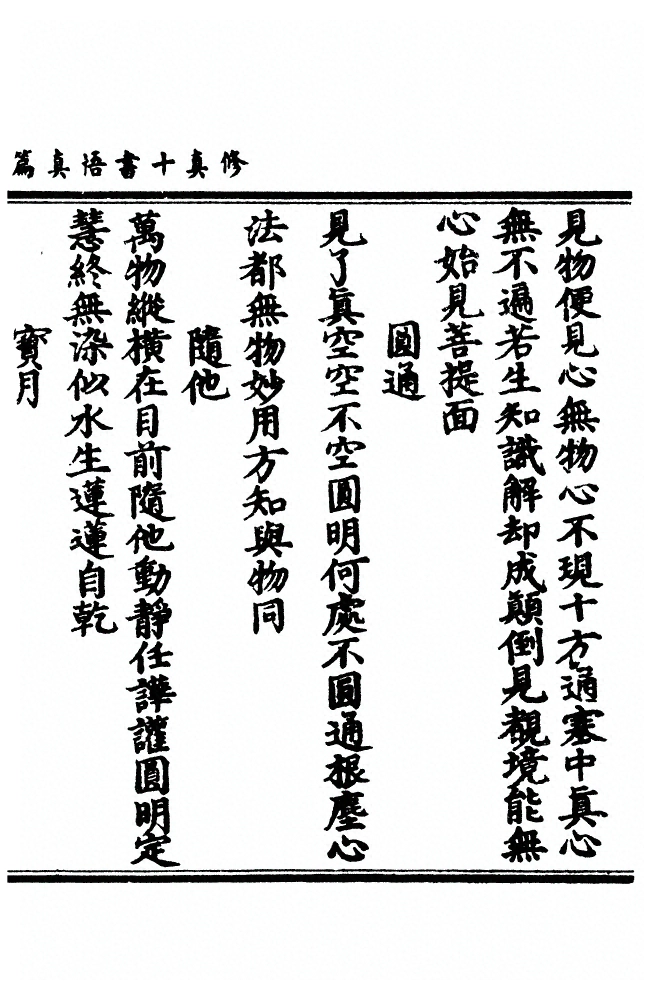 修真十書悟真篇
見物便見心無物心不現十方通塞中真心
無不遍若生知識解却成顛倒見覩境能無
心始見菩提面
圓通
見了真空空不空圓明何處不圓通根塵心
法都無物妙用方知與物同
隨他
萬物縱橫在目前隨他動靜任譁讙圓明定
慧終無染似水生蓮蓮自乾
寶月